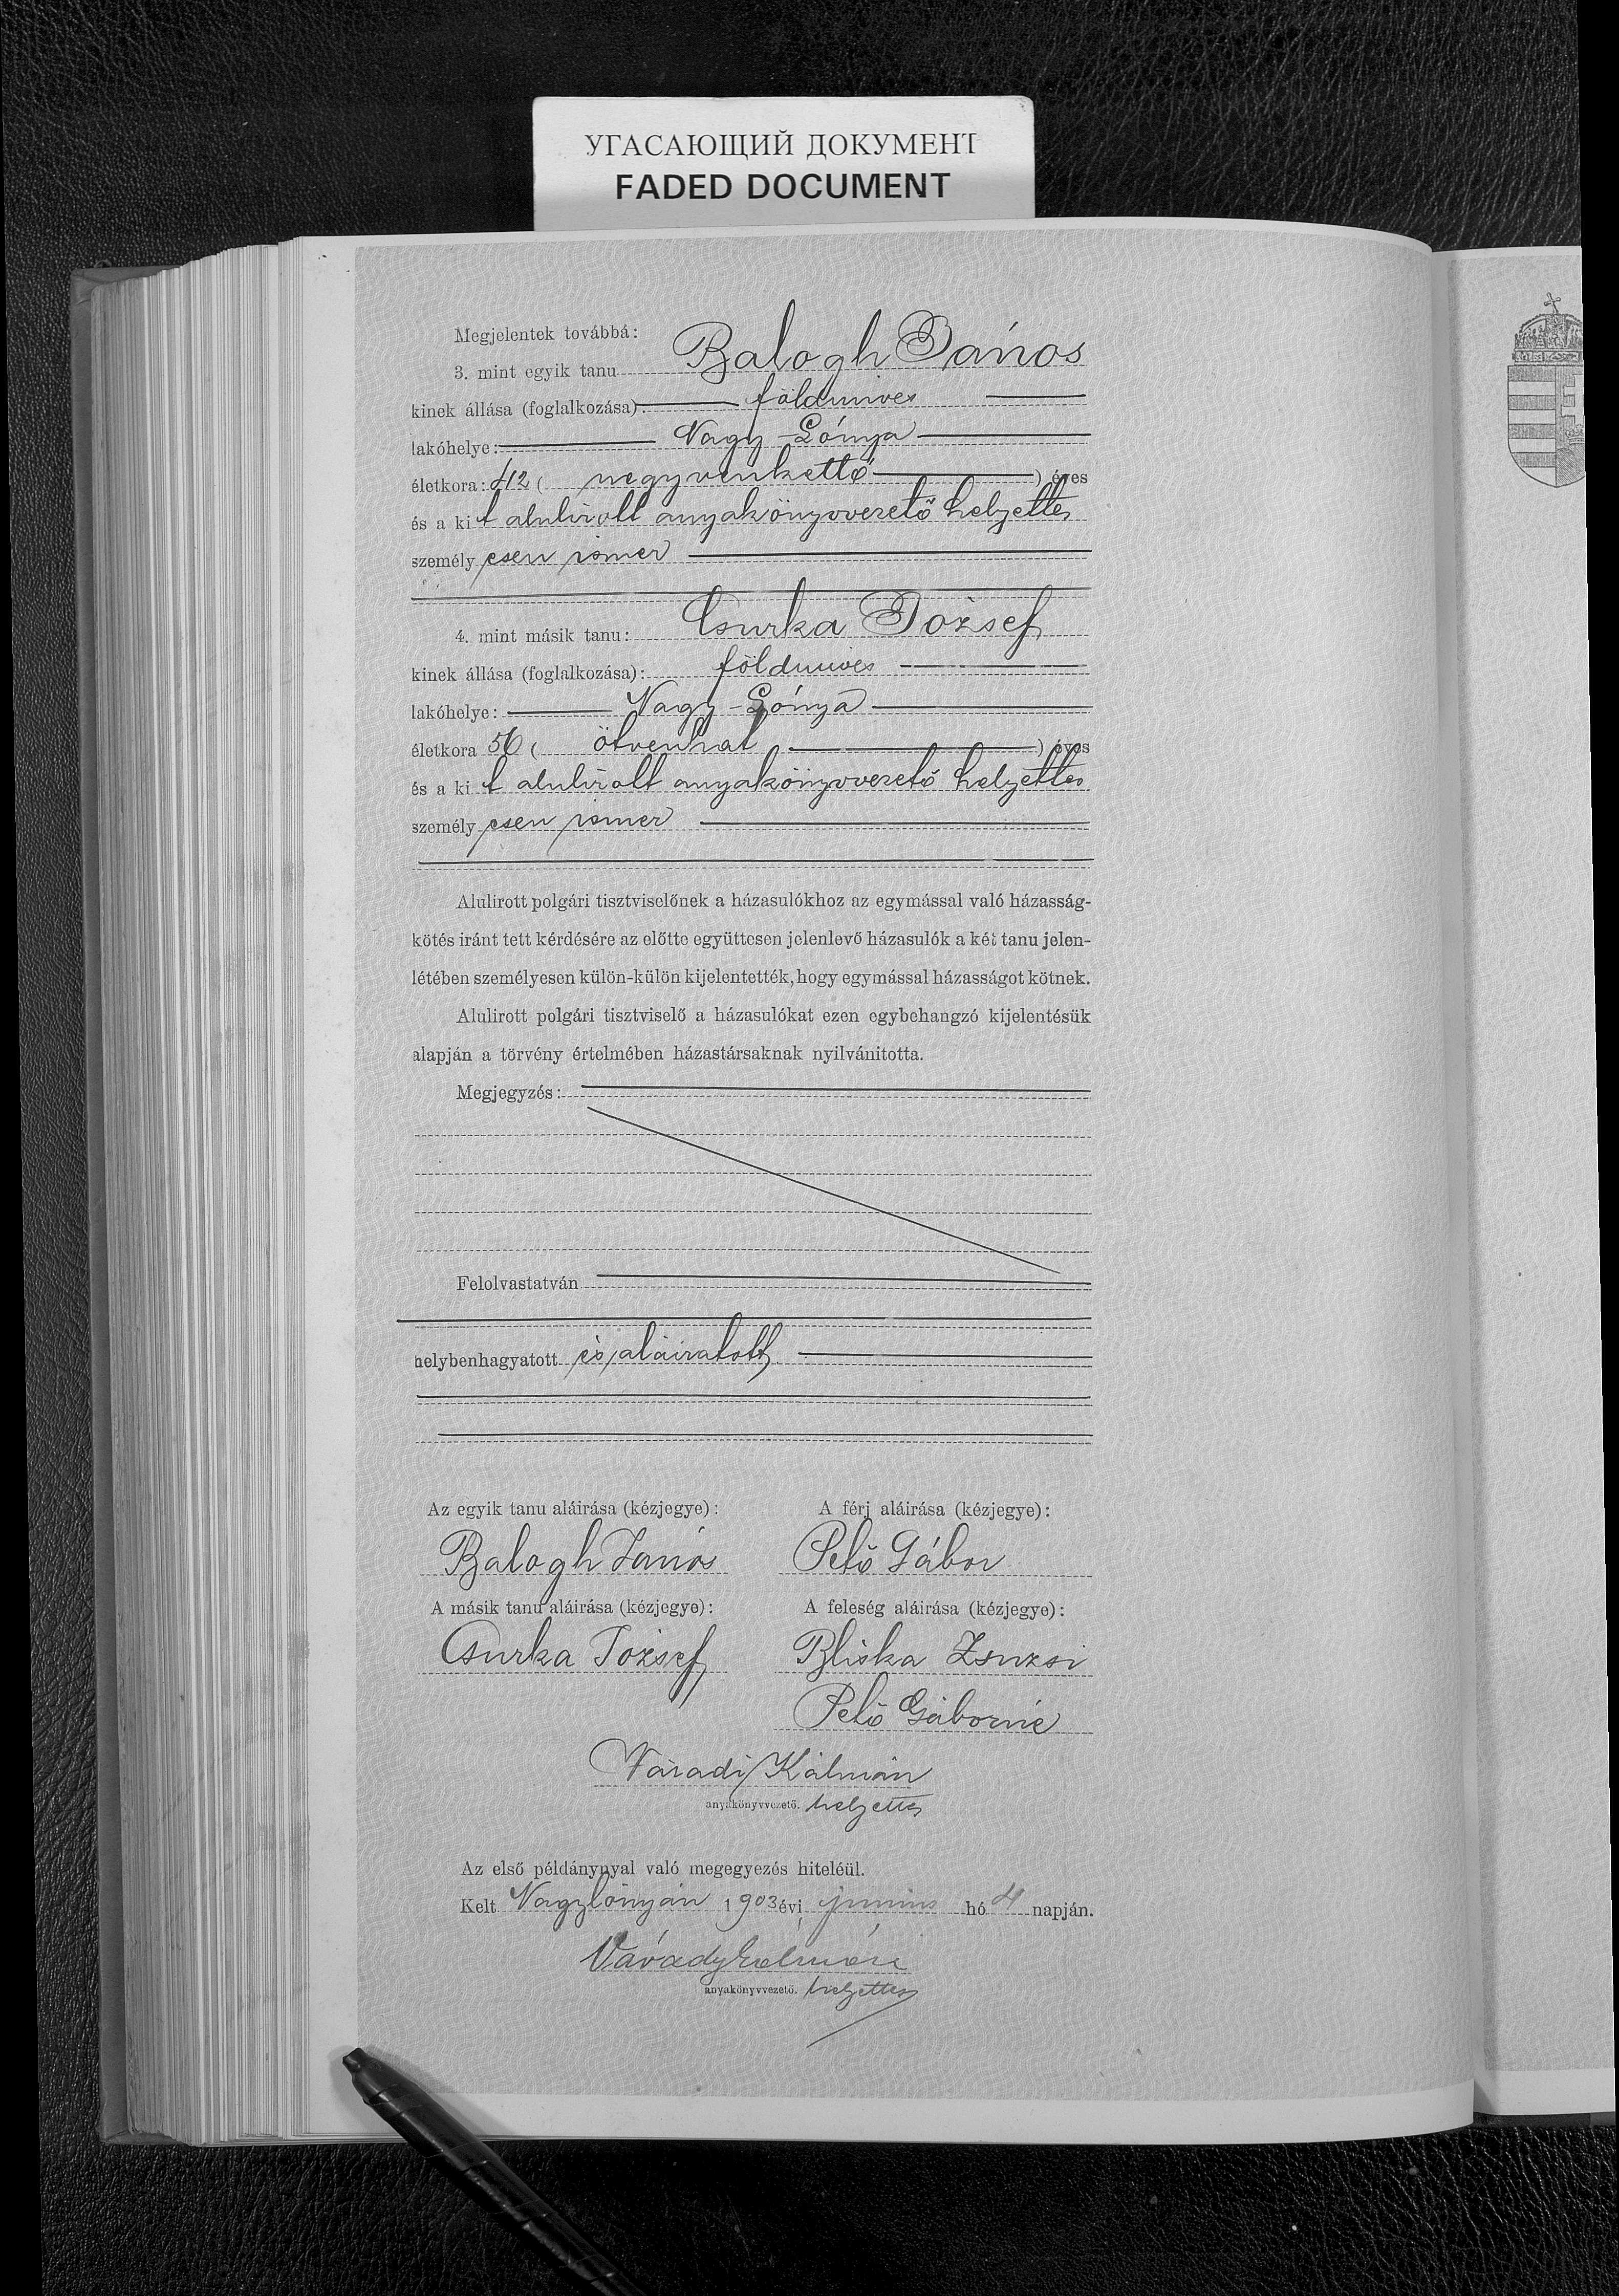 УГАСАЮЩИЙ ДОКУМЕНТ
FADED DOCUMENT
Megjelentek továbbá:
3. mint egyik tanu Balogh János
kinek állása (foglalkozása): földmives
lakóhelye: Nagy-Lónya
életkora: 42 ( negyvenkettő ) éves
és a ki t alulirott anyakönyvvezető helyettes
személy esen ismer
4. mint másik tanu: Csurka József
kinek állása (foglalkozása): földmives
lakóhelye: Nagy-Lónya
életkora 56 ( ötvenhat ) éves
és a ki t alulirott anyakönyvvezető helyettes
személy esen ismer
Alulirott polgári tisztviselőnek a házasulókhoz az egymással való házasság-
kötés iránt tett kérdésére az előtte együttesen jelenlevő házasulók a két tanu jelen-
létében személyesen külön-külön kijelentették, hogy egymással házasságot kötnek.
Alulirott polgári tisztviselő a házasulókat ezen egybehangzó kijelentésük
alapján a törvény értelmében házastársaknak nyilvánitotta.
Megjegyzés:
Felolvastatván
helybenhagyatott és aláiratott
Az egyik tanu aláirása (kézjegye): A férj aláirása (kézjegye):
Balogh János Pető Gábor
A másik tanu aláirása (kézjegye): A feleség aláirása (kézjegye):
Csurka József Bliska Zsuzsi
Pető Gáborné
Váradi Kálmán
anyakönyvvezető. helyettes
Az első példánynyal való megegyezés hiteléül.
Kelt Nagylónyán 1903 évi junius hó 4 napján.
Várady Kálmán
anyakönyvvezető. helyettes